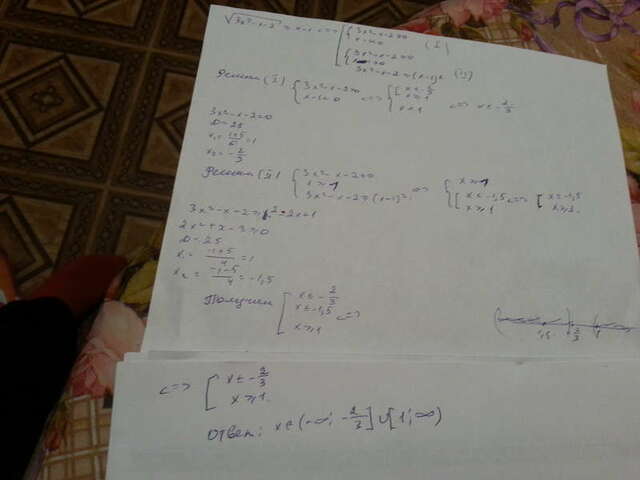 √3x²-x-2 ≥ x-1 <=> [ { 3x²-x-2≥0
x-1<0 (I)
{ 3x²-x-2≥0
x-1≥0
3x²-x-2≥(x-1)² (II)
Решим (I) { 3x²-x-2≥0
x-1<0 <=> { [ x≤-2/3
x≥1
x<1 <=> x≤-2/3
3x²-x-2=0
D=25
x₁=(1+5)/6=1
x₂=-2/3
Решим (II) { 3x²-x-2≥0
x≥1
3x²-x-2≥(x-1)² <=> { x≥1
[ x≤-1,5
x≥1 <=> [ x≤-1,5
x≥1
3x²-x-2≥x²-2x+1
2x²+x-3≥0
D=25
x₁=(-1+5)/4=1
x₂=(-1-5)/4=-1,5
Получим [ x≤-2/3
x≤-1,5
x≥1 <=>
<=> [ x≤-2/3
x≥1.
Ответ: x∈(-∞; -2/3]∪[1;∞)